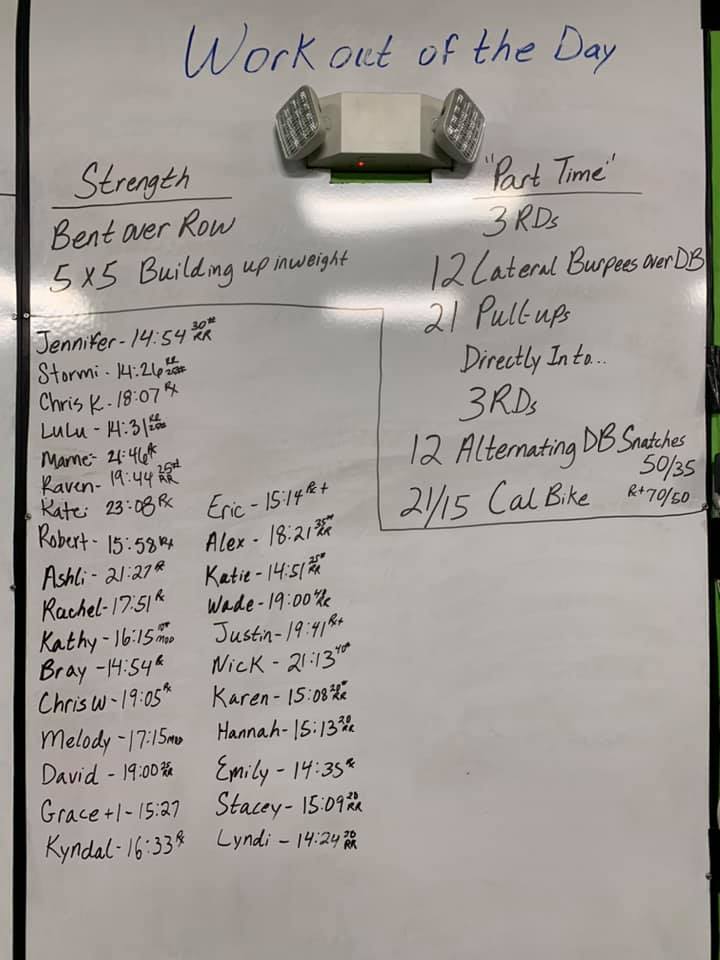 Work out of the Day
Strength
Bent over Row
5 x 5 Building up in weight
"Part Time"
3 RDs
12 Lateral Burpees over DB
21 Pull-ups
Directly Into...
3RDs
12 Alternating DB Snatches
50/35
21/15 Cal Bike
R+ 70/50
Jennifer - 14:54 30# RR
Stormi - 14:26 RR
Chris K - 18:07 Rx
LuLu - 14:31 RR
Marne - 21:46 Rx
Raven - 19:44 25# RR
Kate: 23:08 Rx
Robert - 15:58 Rx
Ashli - 21:27 Rx
Rachel - 17:51 Rx
Kathy - 16:15 MOD
Bray - 14:54 Rx
Chris W - 19:05 Rx
Melody - 17:15 MOD
David - 19:00 RR
Grace +1 - 15:27
Kyndal - 16:33 Rx
Eric - 15:14 Rx +
Alex - 18:21 35# RR
Katie - 14:51 25# RR
Wade - 19:00 RR
Justin - 19:41 Rx+
Nick - 21:13 40#
Karen - 15:08 20# RR
Hannah - 15:13 20 RR
Emily - 14:35 Rx
Stacey - 15:09 20 RR
Lyndi - 14:24 20 RR